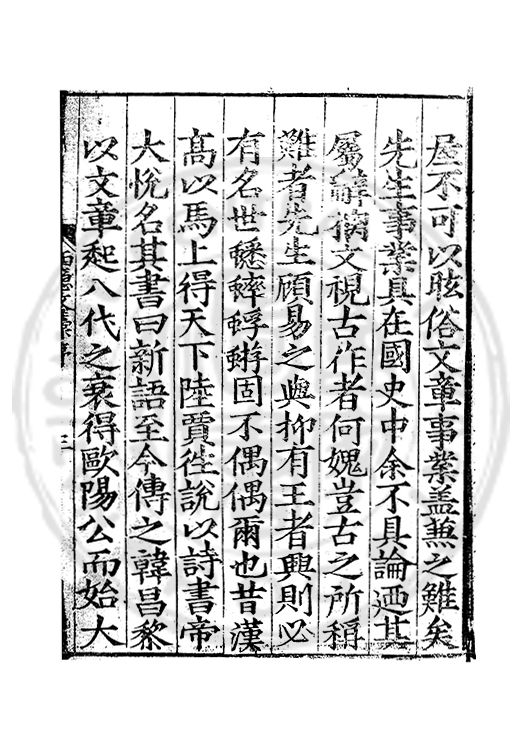 屋不可以眩俗文章事業盖兼之難矣
先生事業具在國史中余不具論迺其
屬辭摛文視古作者何媿豈古之所稱
難者先生顧易之與抑有王者興則必
有名世蟋蟀蜉蝣固不偶偶爾也昔漢
高以馬上得天下陸賈徃說以詩書帝
大悅名其書曰新語至今傳之韓昌黎
以文章起八代之衰得歐陽公而始大